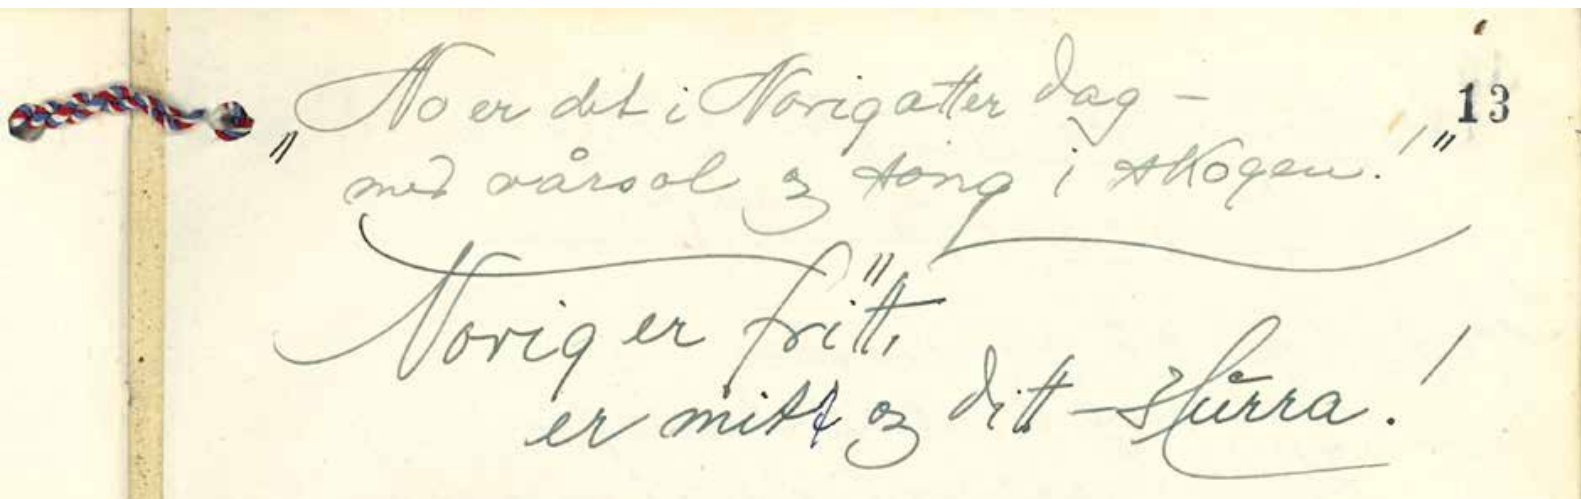 "No er det i Norig atter dag –
13
med vårsol og song i skogen!"
Norig er fritt,
er mitt og ditt – Hurra!